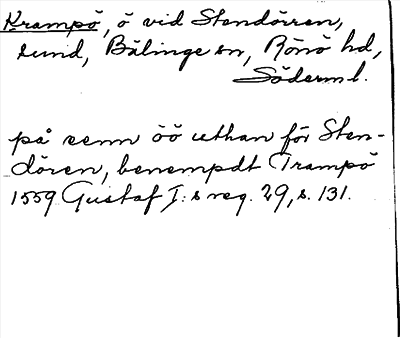 Krampö, ö vid Stendörren,
sund, Bälinge sn, Rönö hd,
Söderml.
på senn öö uthan för Sten-
dören, benempdt Trampö
1559 Gustaf I:s reg. 29, s. 131.